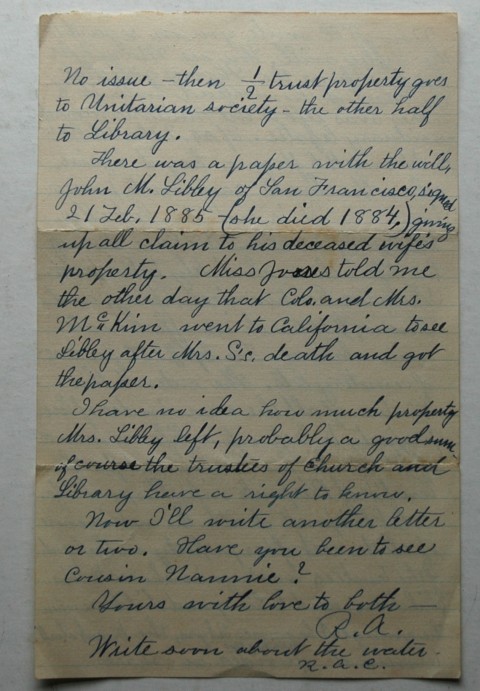 No issue — then 1/2 trust property goes
to Unitarian society — the other half
to Library.
There was a paper with the will,
John M. Libby of San Francisco, signed
21 Feb. 1885 — (she died 1884,) giving
up all claim to his deceased wife's
property. Miss Jones told me
the other day that Col. and Mrs.
McKim went to California to see
Libby after Mrs. S's. death and got
the paper.
I have no idea how much property
Mrs. Libby left, probably a good sum
of course the trustees of Church and
Library have a right to know.
Now I'll write another letter
or two. Have you been to see
Cousin Nannie?
Yours with love to both —
R.A.
Write soon about the water.
R.A.C.